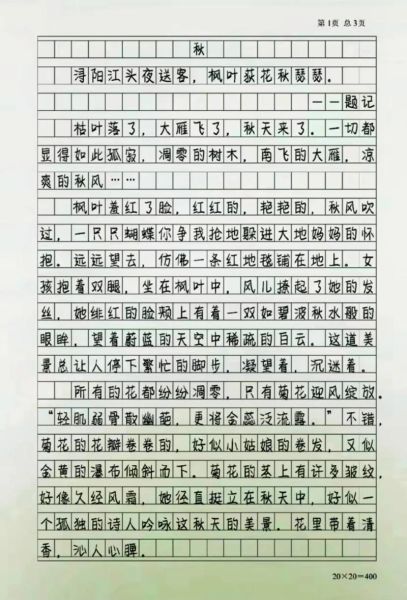 第1页 总3页
秋
浔阳江头夜送客，枫叶荻花秋瑟瑟。
——题记
枯叶落了，大雁飞了，秋天来了．一切都
显得如此孤寂，凋零的树木，南飞的大雁，凉
爽的秋风……
枫叶羞红了脸，红红的，艳艳的，秋风吹
过，一只只蝴蝶你争我抢地躲进大地妈妈的怀
抱．远远望去，仿佛一条红地毯铺在地上．女
孩抱着双腿，坐在枫叶中，风儿撩起了她的发
丝，她绯红的脸颊上有着一双如碧波秋水般的
眼眸，望着蔚蓝的天空中稀疏的白云．这道美
景总让人停下繁忙的脚步，凝望着，沉迷着．
所有的花都纷纷凋零，只有菊花迎风绽放．
“轻肌弱骨散幽葩，更将金蕊泛流霞．”不错，
菊花的花瓣卷卷的，好似小姑娘的卷发，又似
金黄的瀑布倾斜而下．菊花的茎上有许多皱纹，
好像久经风霜，她径直挺立在秋天中，好似一
个孤独的诗人吟咏这秋天的美景．花里带着清
香，沁人心脾．
20×20=400